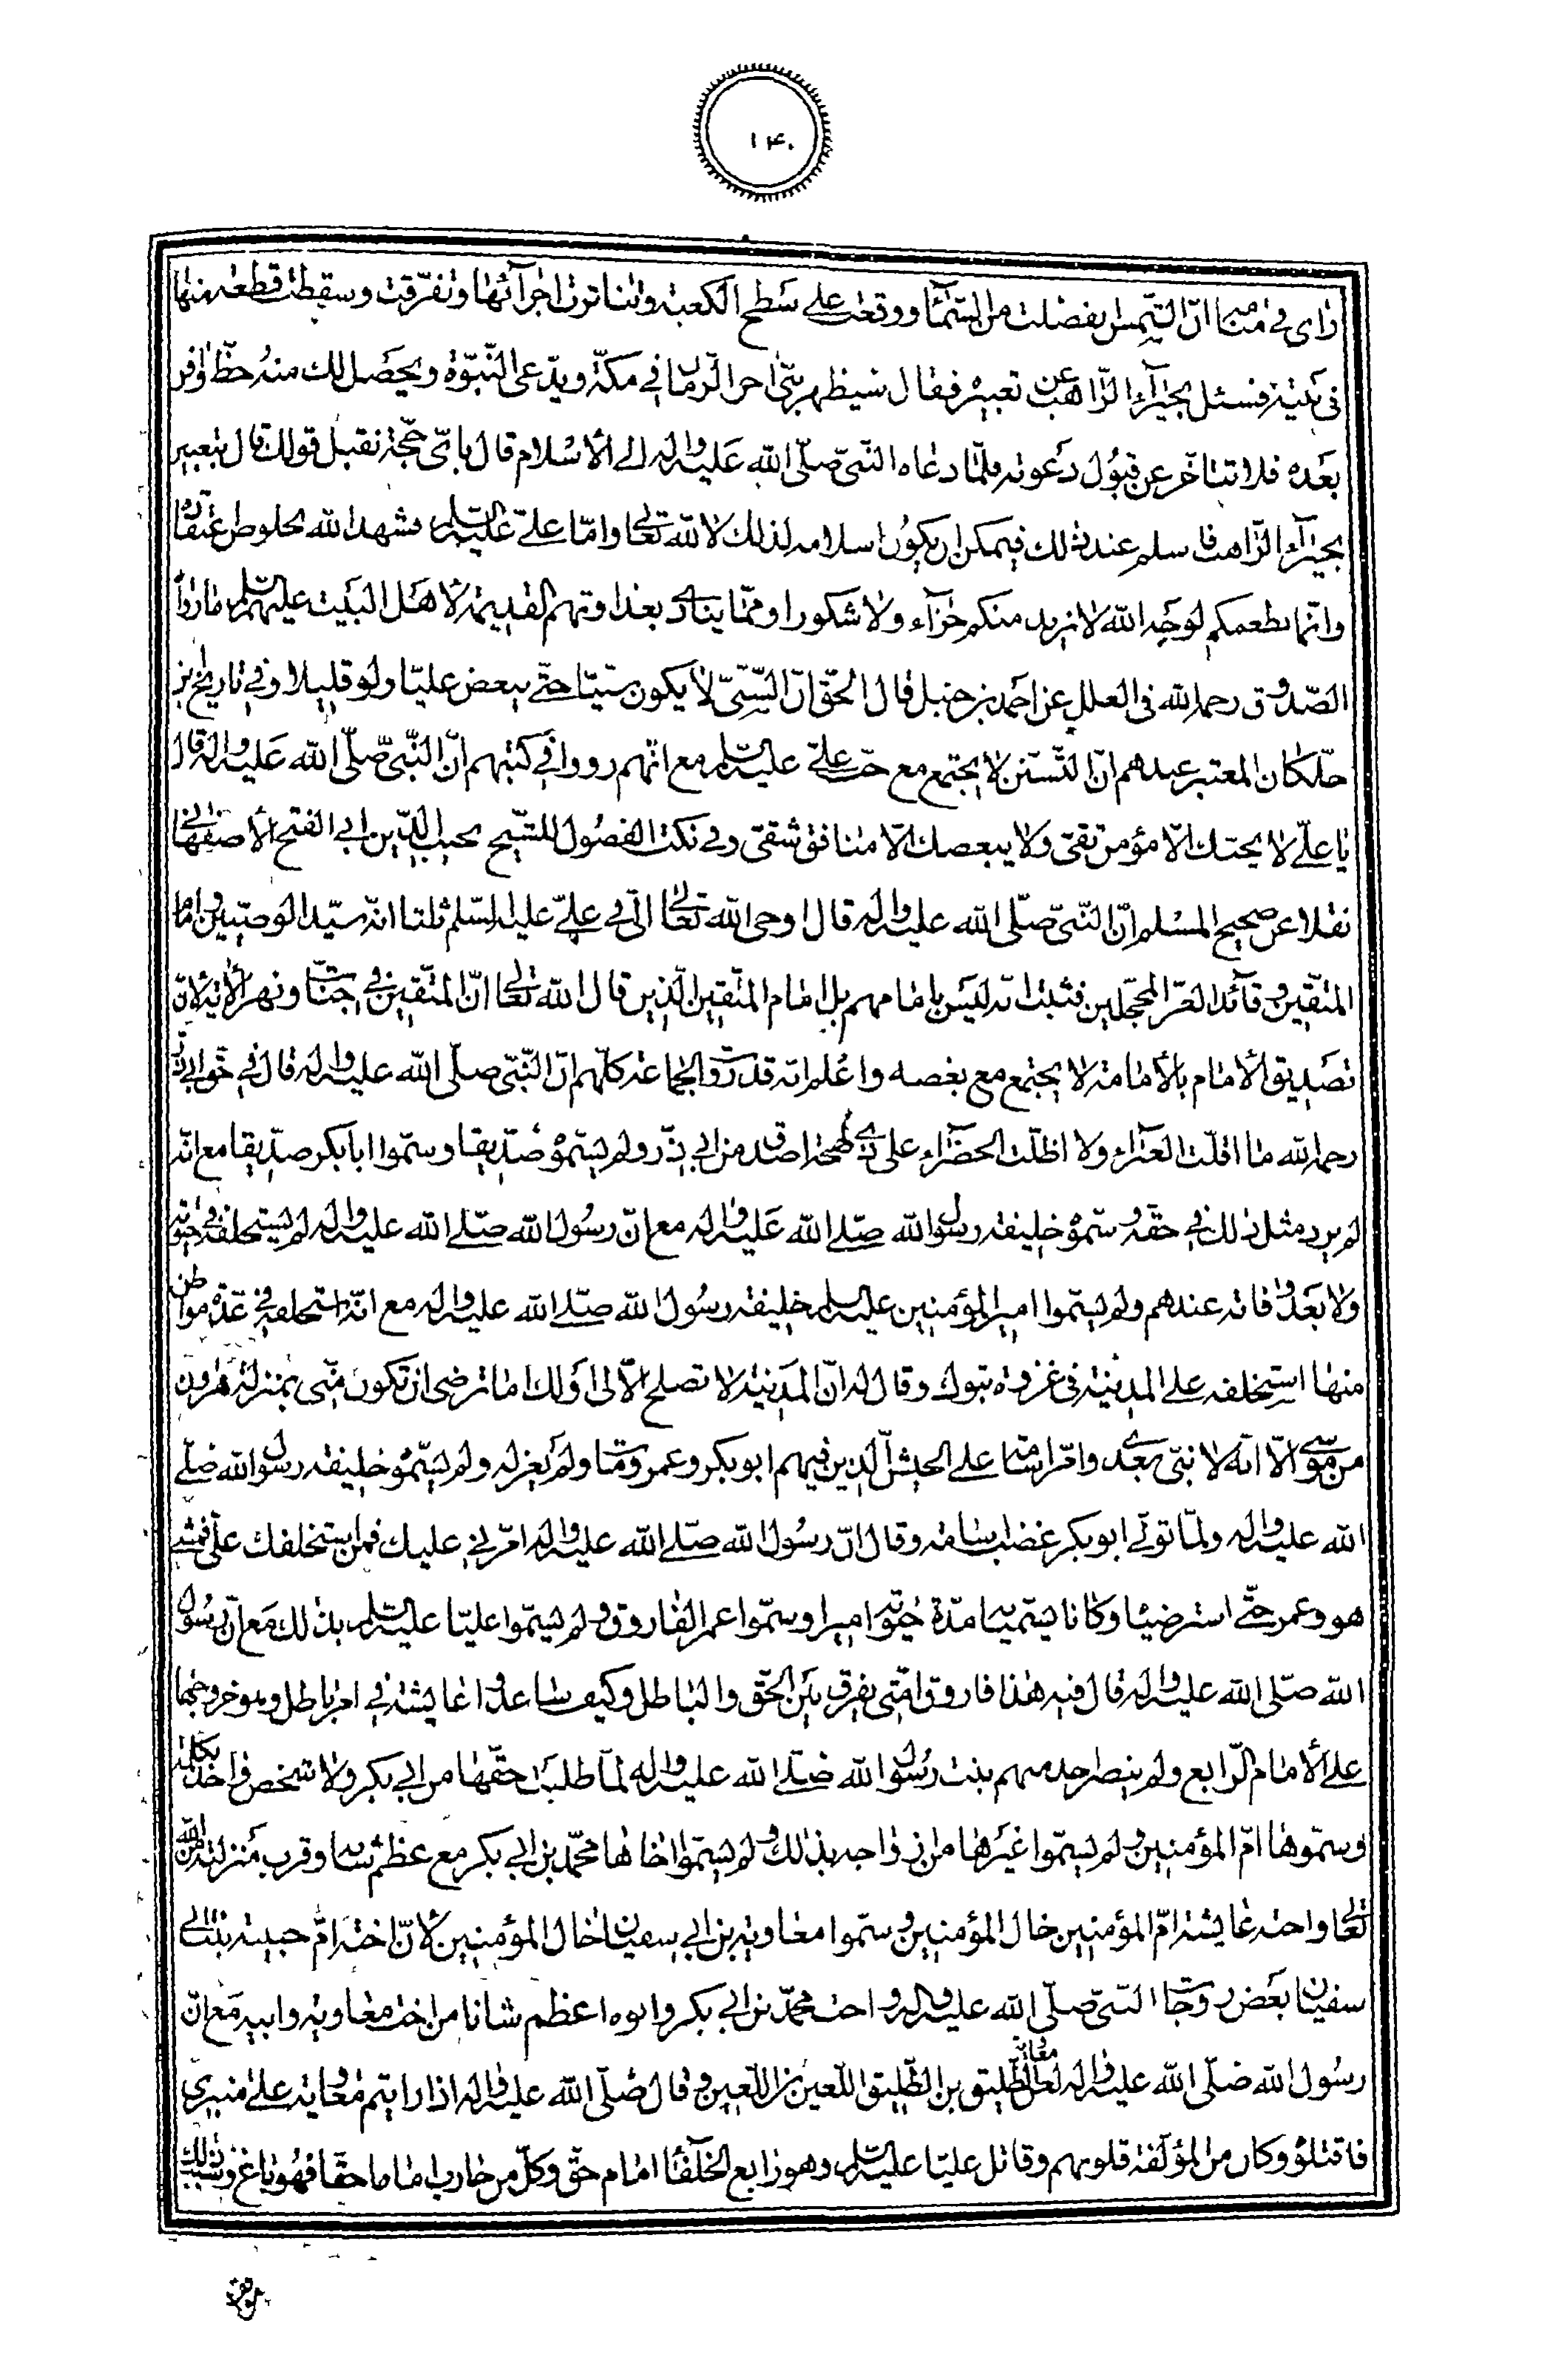 ١٤٠
راى في منامه ان الشّمس بفضلت من السّماء ووقعت على سَطح الكعبة وتناثرت اجزآئها وتفرّقت وسقطت قطعة منها
في بَيته فسئل بحيرآء الرّاهب عن تعبيره فقال سيظهر نبىّ اخر الزّمان في مكّة ويدّعى النّبوّة ويحصَل لك منهُ حظّ وافر
بعَده فلا تتاخّر عن قبُول دَعوته فلمّا دعاه النّبىّ صلّى الله عَليه واله الى الأسْلام قال باىّ حجّة نقبل قولك قال بتعبير
بحيرآء الرّاهب فاسلم عند ذلك فيمكن ان يكوُن اسلامه لذلك لا لله تعالى وامّا علىّ عليه السلم فشهد الله بخلوص عتقاده
وانّما نطعمكم لوجَه الله لا نريد منكم جزآء ولا شكورا وممّا ينادى بعداوتهم القديمة لأهَل البَيت عليهم السلم ما رواه
الصّدوق رحمه الله فى العلل عن احمَد بن حنبل قال الحقّ انّ السّنّىّ لا يكون سنّيّا حتّى يبغض عليّا ولو قليلا وفي تاريخ بن
خلّكان المعتبر عندهم انّ التّسنّن لا يجتمع مع حبّ علىّ عليه السلم مع انّهم رووا في كتبهم انّ النّبىّ صلّى الله عَليه واله قال
يا علىّ لا يحبّك الّا مؤمن تقىّ ولا يبغضك الّا منافق شقىّ وفي نكت الفصُول للشّيخ محبّ الدّين ابى الفتح الأصفهانى
نقلا عن صحيح المسْلم انّ النّبىّ صلّى الله عليه واله قال اوحى الله تعالى الىّ في علىّ عليه السّلم ثلثا انّه سيّد الوصيّين وامام
المتّقين وقآئد الغرّ المحجّلين فثبت انّه ليَس بامامهم بل امام المتّقين الّذين قال الله تعالى انّ المتّقين في جنّات ونهر الأية لأنّ
تصَديق الأمام بالأمامة لا يجتمع مع بغضه واعْلم انّه قد روت الجماعة كلّهم انّ النّبّى صلّى الله عليه واله قال في حَقّ ابى ذرّ
رحمه الله ما اقلّت الغبرآء ولا اظلّت الخضرآء على ذى لهجة اصدق من ابى ذرّ ولم يسّموْه صدّيقا وسمّوا ابا بكر صدّيقا مع انّه
لم يرد مثل ذلك في حقّه وسمّوْه خليفة رسول الله صلّى الله عَليه واله مع انّ رسُول الله صلّى الله عليه واله لم يستخلفه في حيوته
ولا بعَد وفاته عندهم ولم يسمّوا امير المؤمنين عليه السلم خليفة رسُول الله صلّى الله عليه واله مع انّه استخلفه في عدّة مواطن
منها استخلفه على المدينة فى غزوة تبوك وقال له انّ المدَينة لا تصلح الّا لى اوَلك اما ترضى ان تكوَن منّى بمنزلة هرون
من موسى الّا انّه لا نبىّ بعدى وامّر اسامة على الجيش الّذين فيهم ابو بكر وعمر ومات ولم يَعزله ولم يسّموْه خليفة رسول الله صلّى
الله عليه واله ولمّا تولّى ابو بكر غضب اسامة وقال انّ رسُول الله صلّى الله عليه واله امّرنى عليك فمن استخلفك علىّ فمشى
هو وعمر حتّى استرضيا وكانا يسّميانه مدّة حيوته اميرا وسمّوا عمر الفاروق ولم يسّموا عليّا عليه السلم بذلك مَع انّ رسُول
الله صلّى الله عليه واله قال فيه هٰذا فاروق امّتى يفرق بيَن الحقّ والباطل وكيف ساعدوا عايشة في امر باطل وهو خروجها
على الأمام الرّابع ولم ينصر احد منهم بنت رسُول الله صلّى الله عليه واله لمّا طلبَت حقّها من ابى بكر ولا شخص واحد بكلمة
وسمّوها امّ المؤمنين ولم يسّموا غيَرها من ازواجه بذلك ولم يسّموا اخاها محمّد بن ابى بكر مع عظم شانه وقرب مَنزلته من الله
تعالى واخته عايشة امّ المؤمنين خال المؤمنين وسمّوا معاوية بن ابى سفيان خال المؤمنين لأنّ اخته امّ حبيبة بنت ابى
سفيان بعَض زوجات النّبىّ صلّى الله عليه واله واخت محمّد بن ابى بكر وابوه اعظم شانا من اخت معاوية وابيه مَع انّ
رسُول الله صلّى الله عليه واله لعن معاوية الطّليق بن الطّليق اللّعين بن اللّعين وقال صلّى الله عليه واله اذا رايتم معوية على منبرى
فاقتلوْه وكان من المؤلّفة قلوبهم وقاتل عليّا عليه السلم وهو رابع الخلفآء امام حقّ وكلّ من حارب اماما حقّا فهُو باغ وسبب ذلك